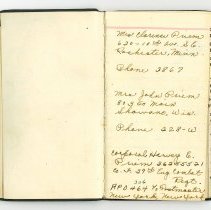 Mrs Clarence Priem
620-10th Ave. S.E.
Rochester, Minn
Phone 3867
Mrs John Priem
Main
Shawano, Wis.
Phone 328-W
Corporal Harvey E.
Priem 36285521
Co. F. 39th Eng Combat
Regt.
APO 464 % Postmaster
New York, New York